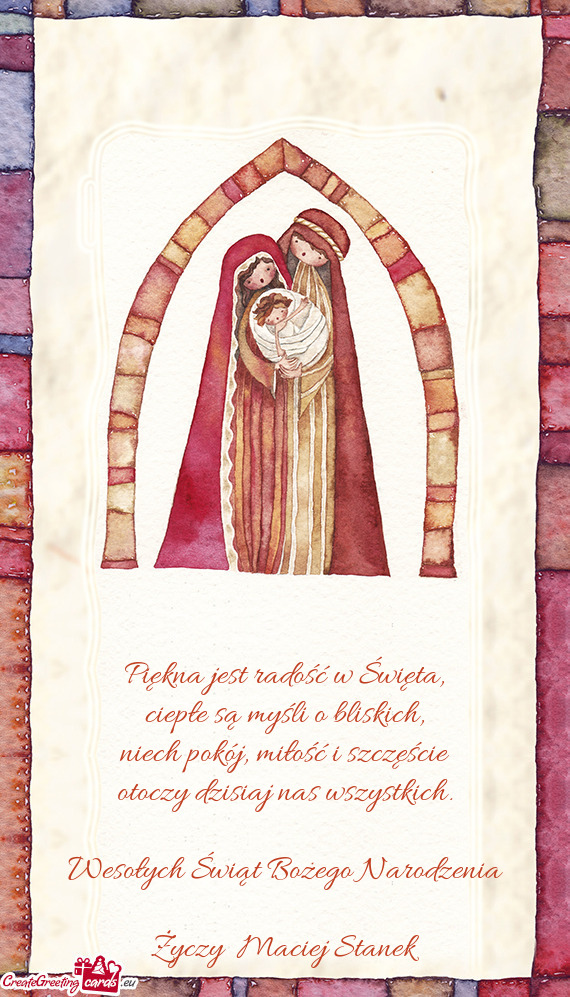 Piękna jest radość w Święta,
ciepłe są myśli o bliskich,
niech pokój, miłość i szczęście
otoczy dzisiaj nas wszystkich.
Wesołych Świąt Bożego Narodzenia
Życzy Maciej Stanek
CreateGreeting cards .eu